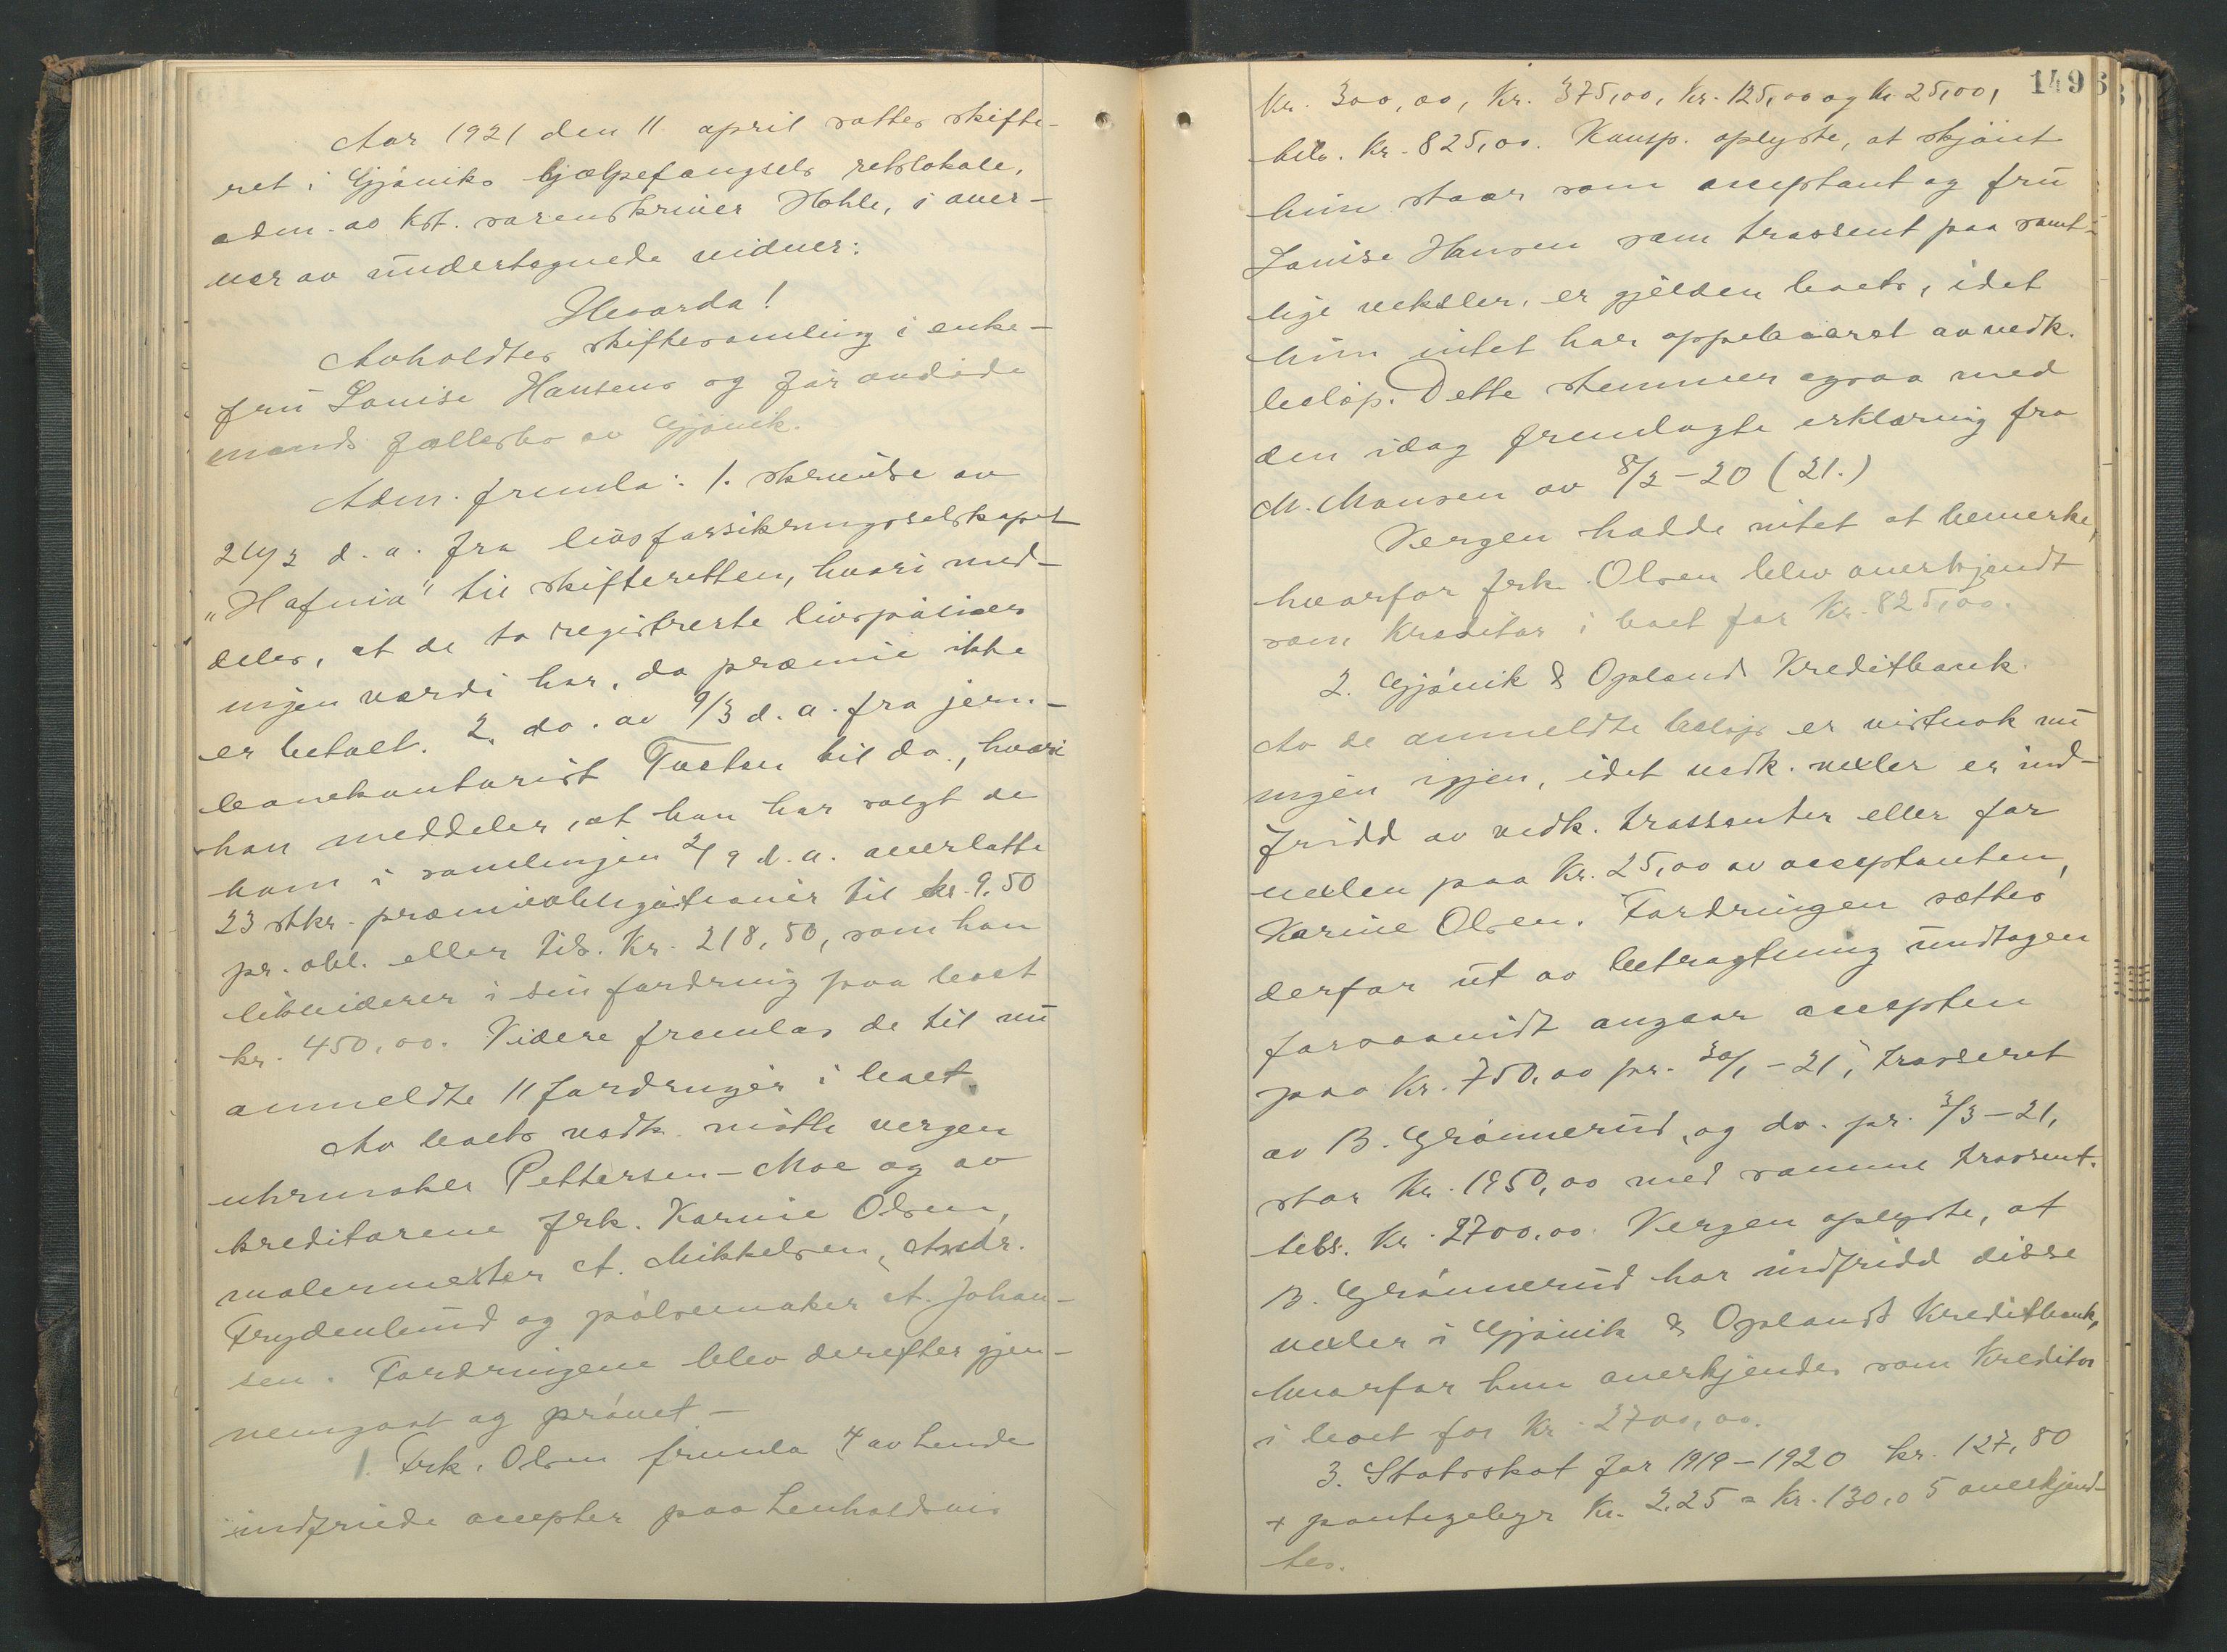 Aar 1921 den 11 april sattes skifte-
ret i Gjøviks hjælpefangsels retslokale,
adm. av kst. sorenskriver Hohle, i over-
vær av undertegnede vidner:
Hvorda!
Avholdtes skiftesamling i enke-
fru Louise Hansens og før avdøde
mands fællesbo av Gjøvik.
Adm. fremla: 1. skrivelse av
d. a. fra livsforsikringsselskapet
"Hafnia" til skifteretten, hvori med-
deles, at de to registrerte livspoliser
ingen værdi har, da præmie ikke
er betalt. 2. do. av 9/3 d. a. fra jern-
banekontorist Tveten til do., hvori
han meddeler, at han har solgt de
ham i samlingen d. a. overlatte
23 stkr. præmieobligationer til kr. 9.50
pr. obl. eller tils. Kr. 218,50, som han
likviderer i sin fordring paa boet
kr. 450,00. Videre fremlas de til nu
anmeldte 11 fordringer i boet.
Av boets vedk. møtte vergen
uhrmaker Pettersen-Moe og av
kreditorene frk. Karine Olsen,
malermester A. Mikkelsen, Andr.
Frydenlund og pølsemaker A. Johan-
sen. Fordringene blev derefter gjen-
nemgaat og prøvet -
1. Frk. Olsen fremla 4 av hende
indfriede accepter paa henholdsvis
149
Kr. 300,00, Kr. 375,00, Kr. 125,00 og Kr 25,00,
tils. Kr. 825,00. Komp. oplyste, at skjønt
hun staar som acceptant og fru
Louise Hansen som trassent paa samt-
lige veksler, er gjelden boets, idet
hun intet har oppebaaret av vedk.
beløp. Dette stemmer ogsaa med
den idag fremlagte erklæring fra
M. Monsen av 8/2-20 (21.)
Vergen hadde intet at bemerke,
hvorfor frk. Olsen blev anerkjendt
som Kreditor i boet for Kr. 825,00.
2. Gjøvik & Oplands Kreditbank.
Av de anmeldte beløp er vistnok nu
ingen igjen, idet vedk. vexler er ind-
fridd av vedk. trassenter eller for
vexlen paa Kr. 25,00 av acceptanten,
Karine Olsen. Fordringen sættes
derfor ut av betragtning undtagen
forsaavidt angaar accepten
paa Kr. 750,00 pr. 30/1-21, trasseret
av B. Grønnerud, og do. pr. 3/3-21,
stor Kr. 1950,00 med samme trassent.
tils. Kr. 2700,00. Vergen oplyste, at
B. Grønnerud har indfridd disse
vexler i Gjøvik & Oplands Kreditbank,
hvorfor hun anerkjendes som Kreditor
i boet for Kr. 2700,00.
3. Statsskat for 1919-1920 kr. 127,80
+ pantegebyr Kr. 2.25 = Kr. 130,05 anerkjend-
tes.